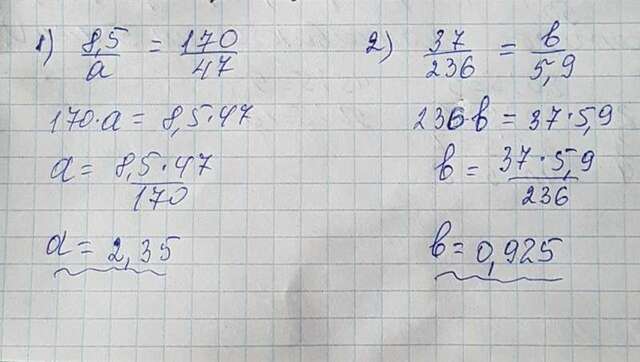 1) 8,5/a = 170/47
170·a = 8,5·47
a = 8,5·47/170
a = 2,35
2) 37/236 = b/5,9
236·b = 37·5,9
b = 37·5,9/236
b = 0,925